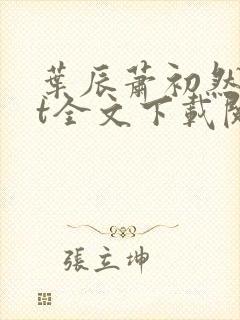 葉辰蕭初然
t全文下載閱
張立坤